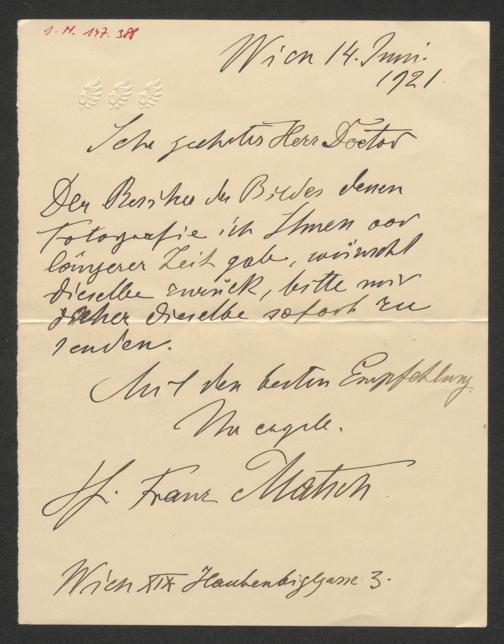 1.N. 147.388
Wien 14. Juni.
1921.
Sehr geehrter Herr Doctor
Der Besitzer des Bildes dessen
Fotografie ich Ihnen vor
längerer Zeit gab, wünscht
dieselbe zurück, bitte mir
daher dieselbe sofort zu
senden.
Mit den besten Empfehlung
Ihr ergeb.
Franz Matsch
Wien XIX Haubenbiglgasse 3.